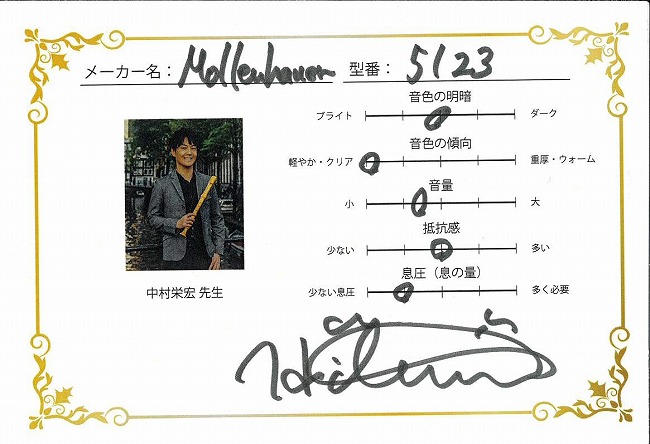 メーカー名：Mollenhauer 型番：5123
音色の明暗
ブライト ダーク
音色の傾向
軽やか・クリア 重厚・ウォーム
音量
小 大
抵抗感
少ない 多い
息圧（息の量）
少ない息圧 多く必要
中村栄宏 先生